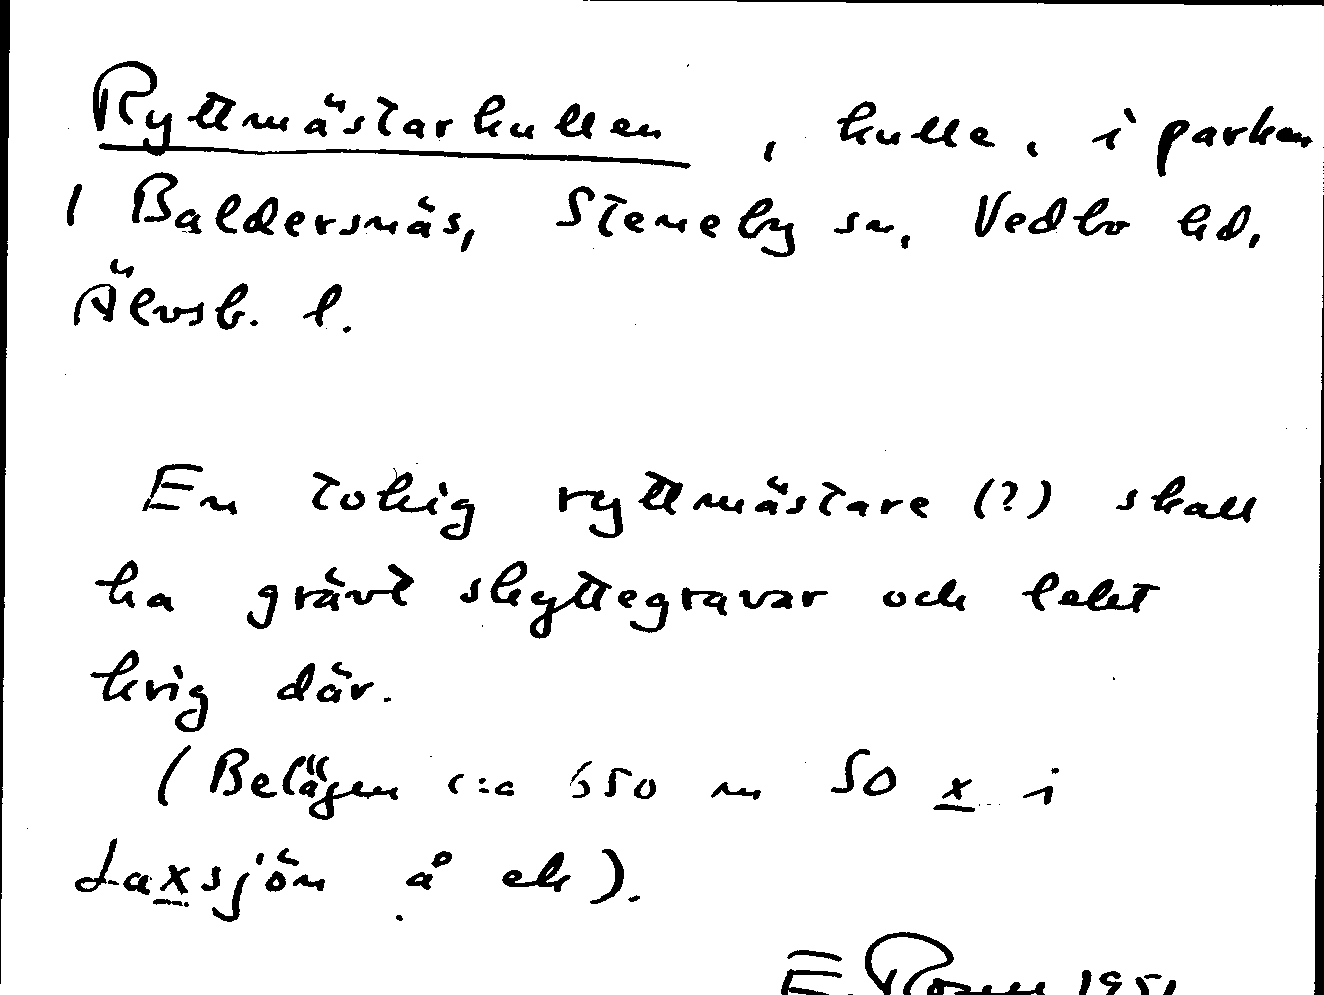 Ryttmästarkullen, kulle, i parken
i Baldersnäs, Steneby sn, Vedbo hd,
Älvsb. l.
En tokig ryttmästare (?) skall
ha grävt skyttegravar och lekt
krig där.
(Belägen c:a 650 m SO x i
Laxsjön å ek).
E.